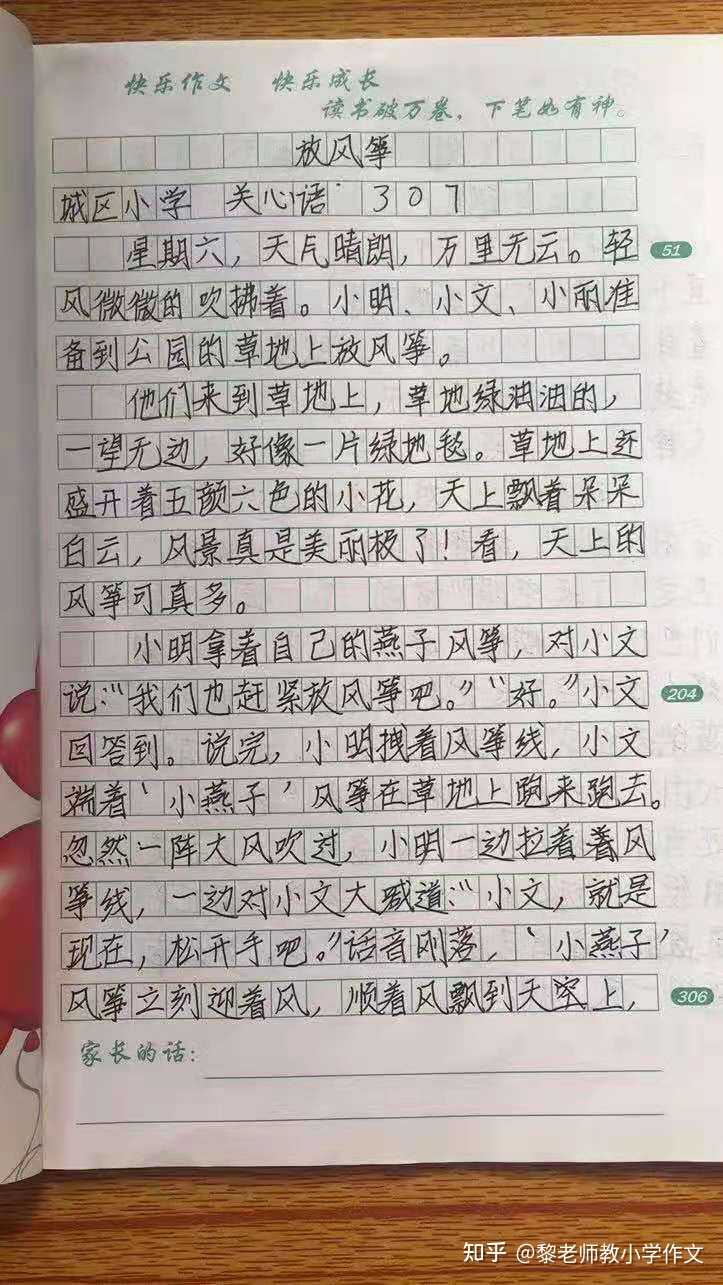 快乐作文 快乐成长
读书破万卷，下笔如有神。
放风筝
城区小学 关心语 307
星期六，天气晴朗，万里无云。轻
51
风微微的吹拂着。小明、小文、小丽准
备到公园的草地上放风筝。
他们来到草地上，草地绿油油的，
一望无边，好像一片绿地毯。草地上还
盛开着五颜六色的小花，天上飘着朵朵
白云，风景真是美丽极了！看，天上的
风筝可真多。
小明拿着自己的燕子风筝，对小文
说：“我们也赶紧放风筝吧。”“好。”小文
204
回答到。说完，小明拽着风筝线，小文
端着‘小燕子’风筝在草地上跑来跑去。
忽然一阵大风吹过，小明一边拉着着风
筝线，一边对小文大喊道：“小文，就是
现在，松开手吧。”话音刚落，‘小燕子’
风筝立刻迎着风，顺着风飘到天空上，
306
家长的话：
知乎 @黎老师教小学作文